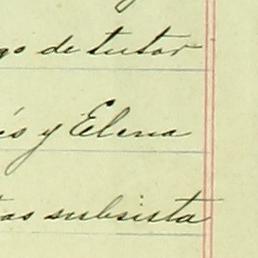 go de tutor
és y Elena
tas subsista